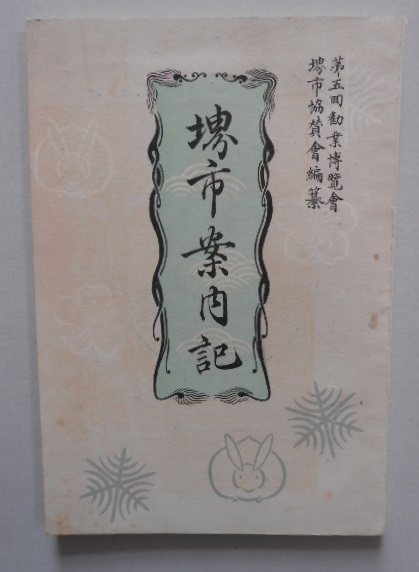 第五回勧業博覧會
堺市協賛會編纂
堺市案内記